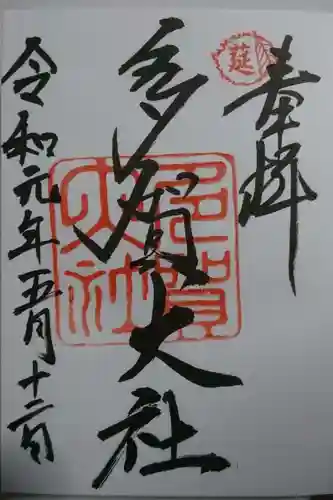 奉拝
莚
多賀大社
多賀大社
令和元年五月十二日